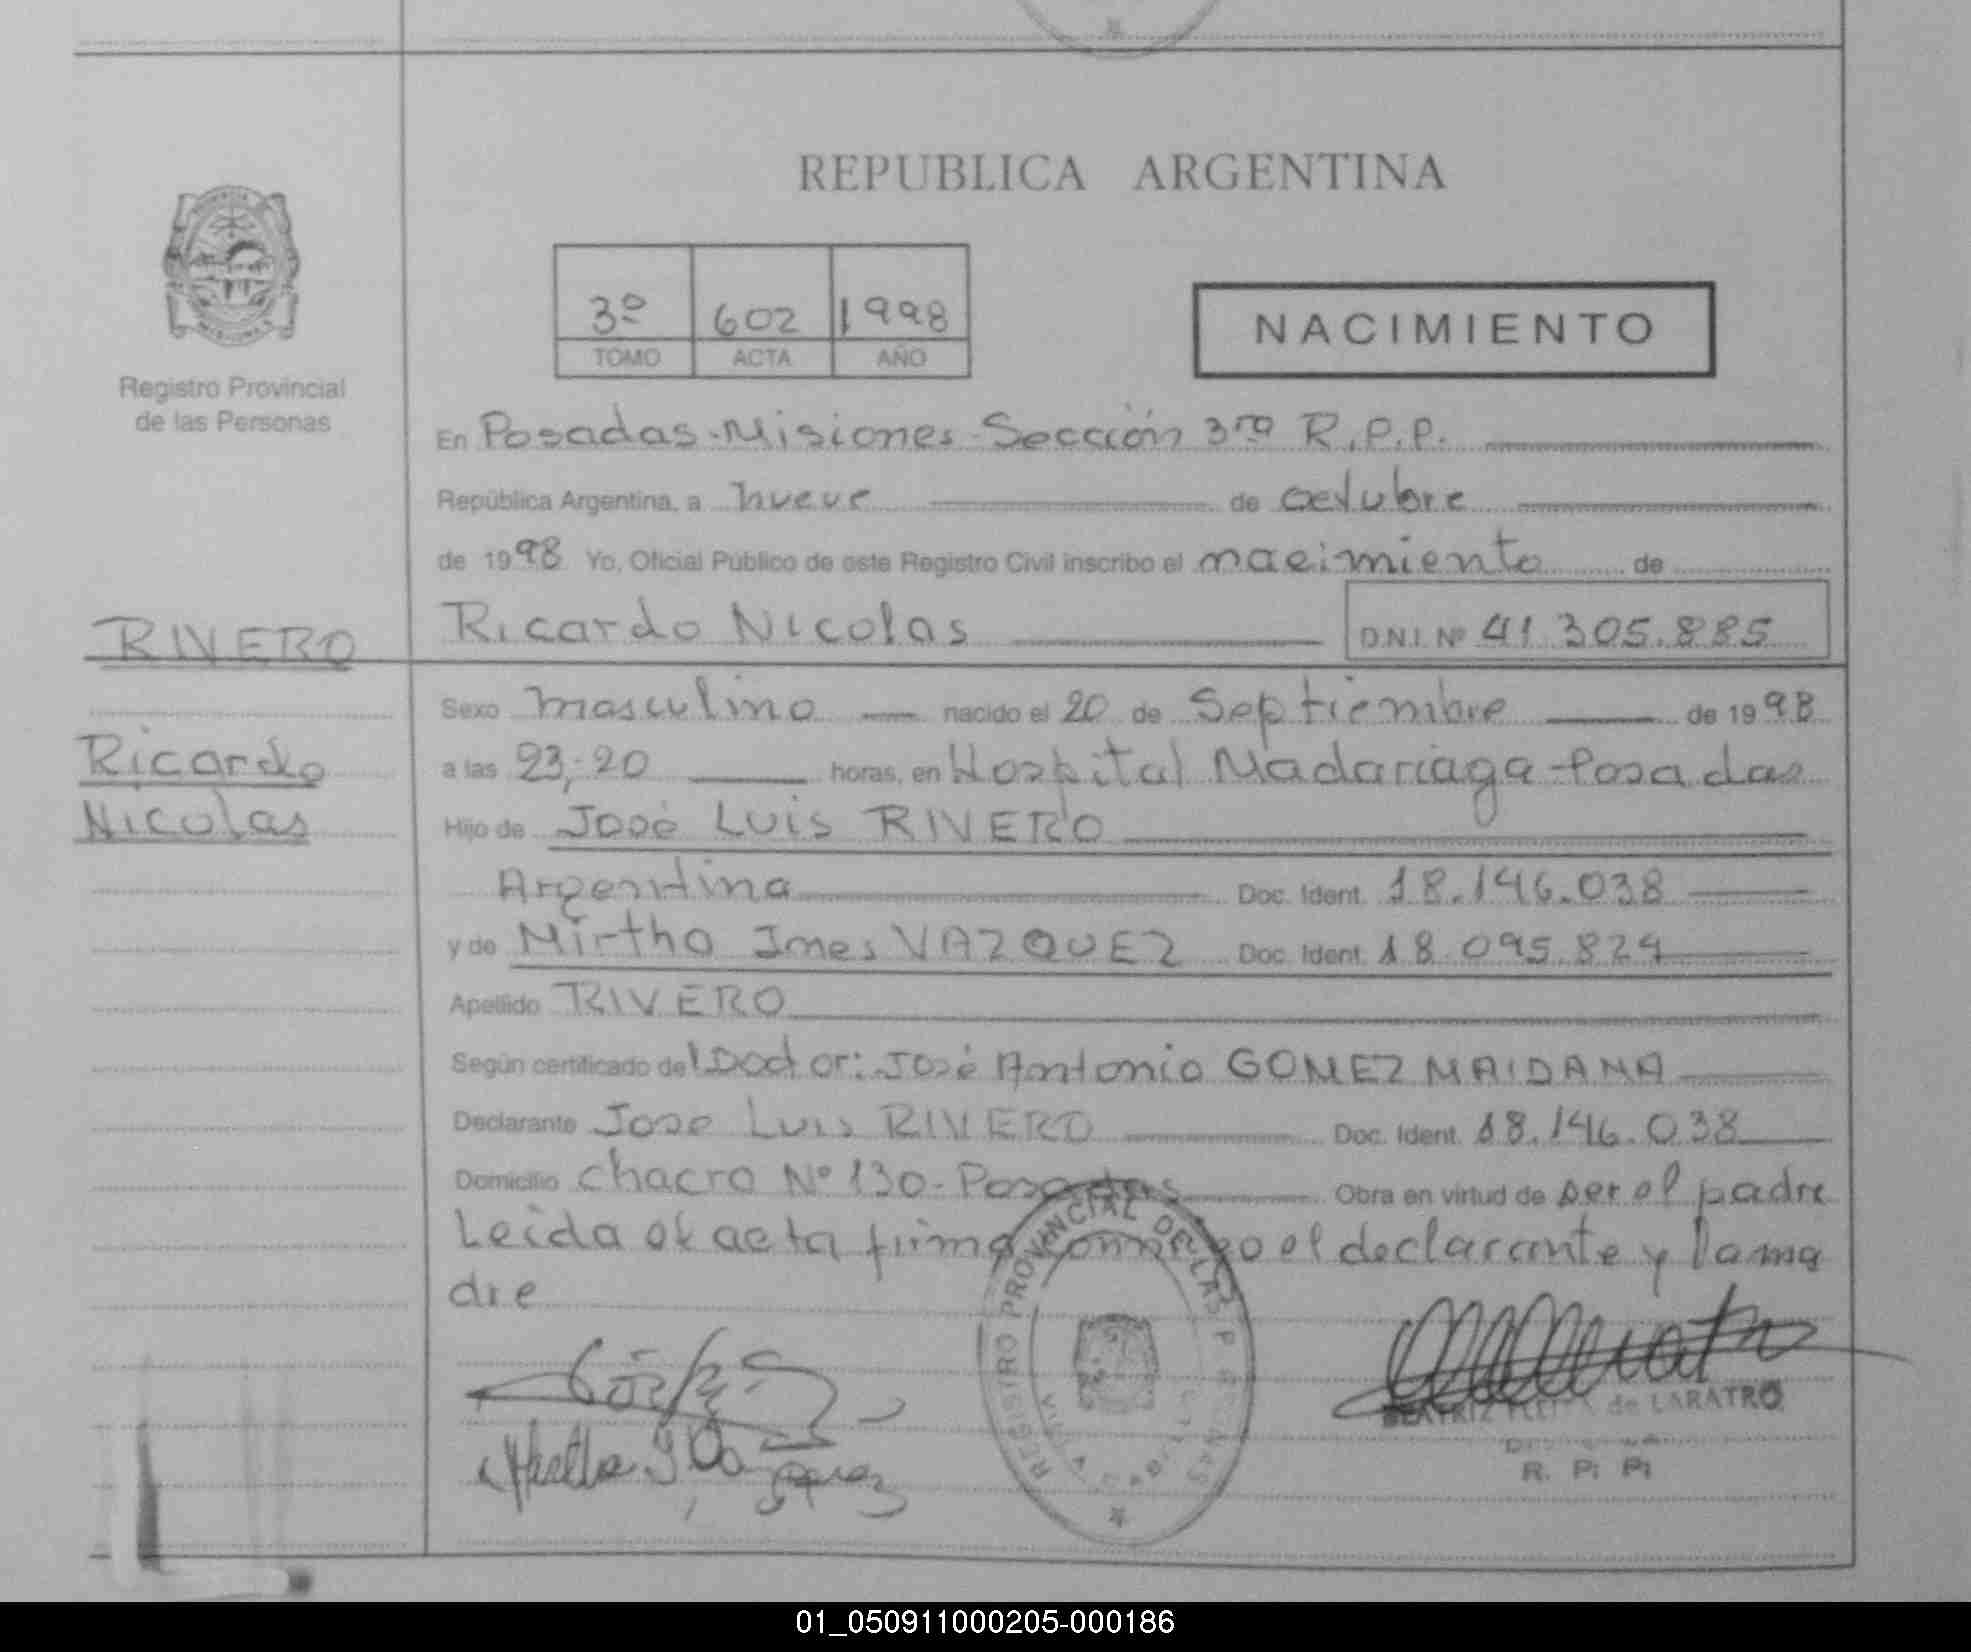 REPUBLICA ARGENTINA
3º 602 1998
TOMO ACTA AÑO
NACIMIENTO
Registro Provincial
de las Personas
En Posadas-Misiones-Sección 3ra R.P.P.
República Argentina, a nueve de octubre
de 1998 Yo, Oficial Público de este Registro Civil inscribo el nacimiento de
RIVERO
Ricardo
Nicolas
Ricardo Nicolas D.N.I. Nº 41.305.885
Sexo masculino nacido el 20 de Septiembre de 1998
a las 23,20 horas, en Hospital Madariaga-Posadas
Hijo de José Luis RIVERO
Argentina Doc. Ident. 18.146.038
y de Mirtha Ines VAZQUEZ Doc. Ident. 18.095.824
Apellido RIVERO
Según certificado del Doctor: José Antonio GOMEZ MAIDANA
Declarante Jose Luis RIVERO Doc. Ident. 18.146.038
Domicilio chacra Nº 130-Posadas Obra en virtud de ser el padre
Leida el acta firma conmigo el declarante y la ma
dre
REGISTRO PROVINCIAL DE LAS PERSONAS
BEATRIZ de LARATRO
R. P. P.
01_050911000205-000186